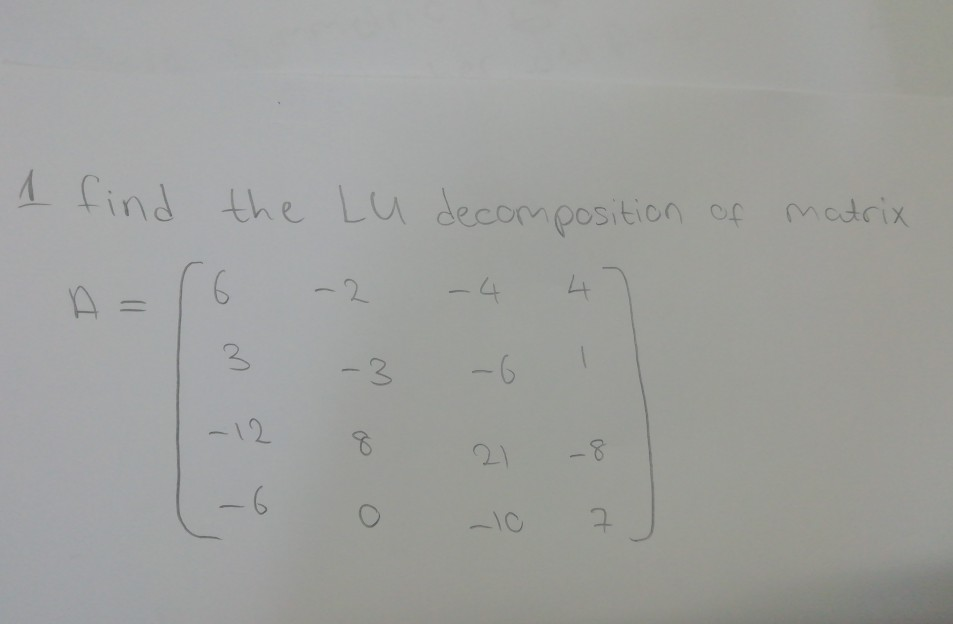 1 find the LU decomposition of matrix
A = [ 6 -2 -4 4
3 -3 -6 1
-12 8 21 -8
-6 0 -10 7 ]